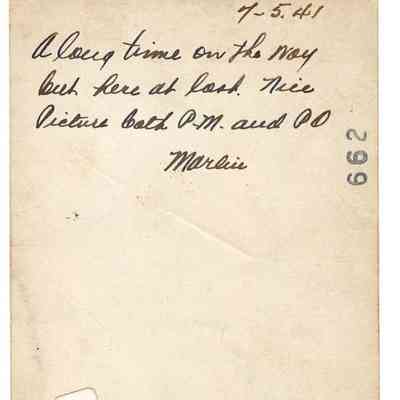 7-5.41
A long time on the way
but here at last. Nice
Picture both P.M. and PO
Marlin
662